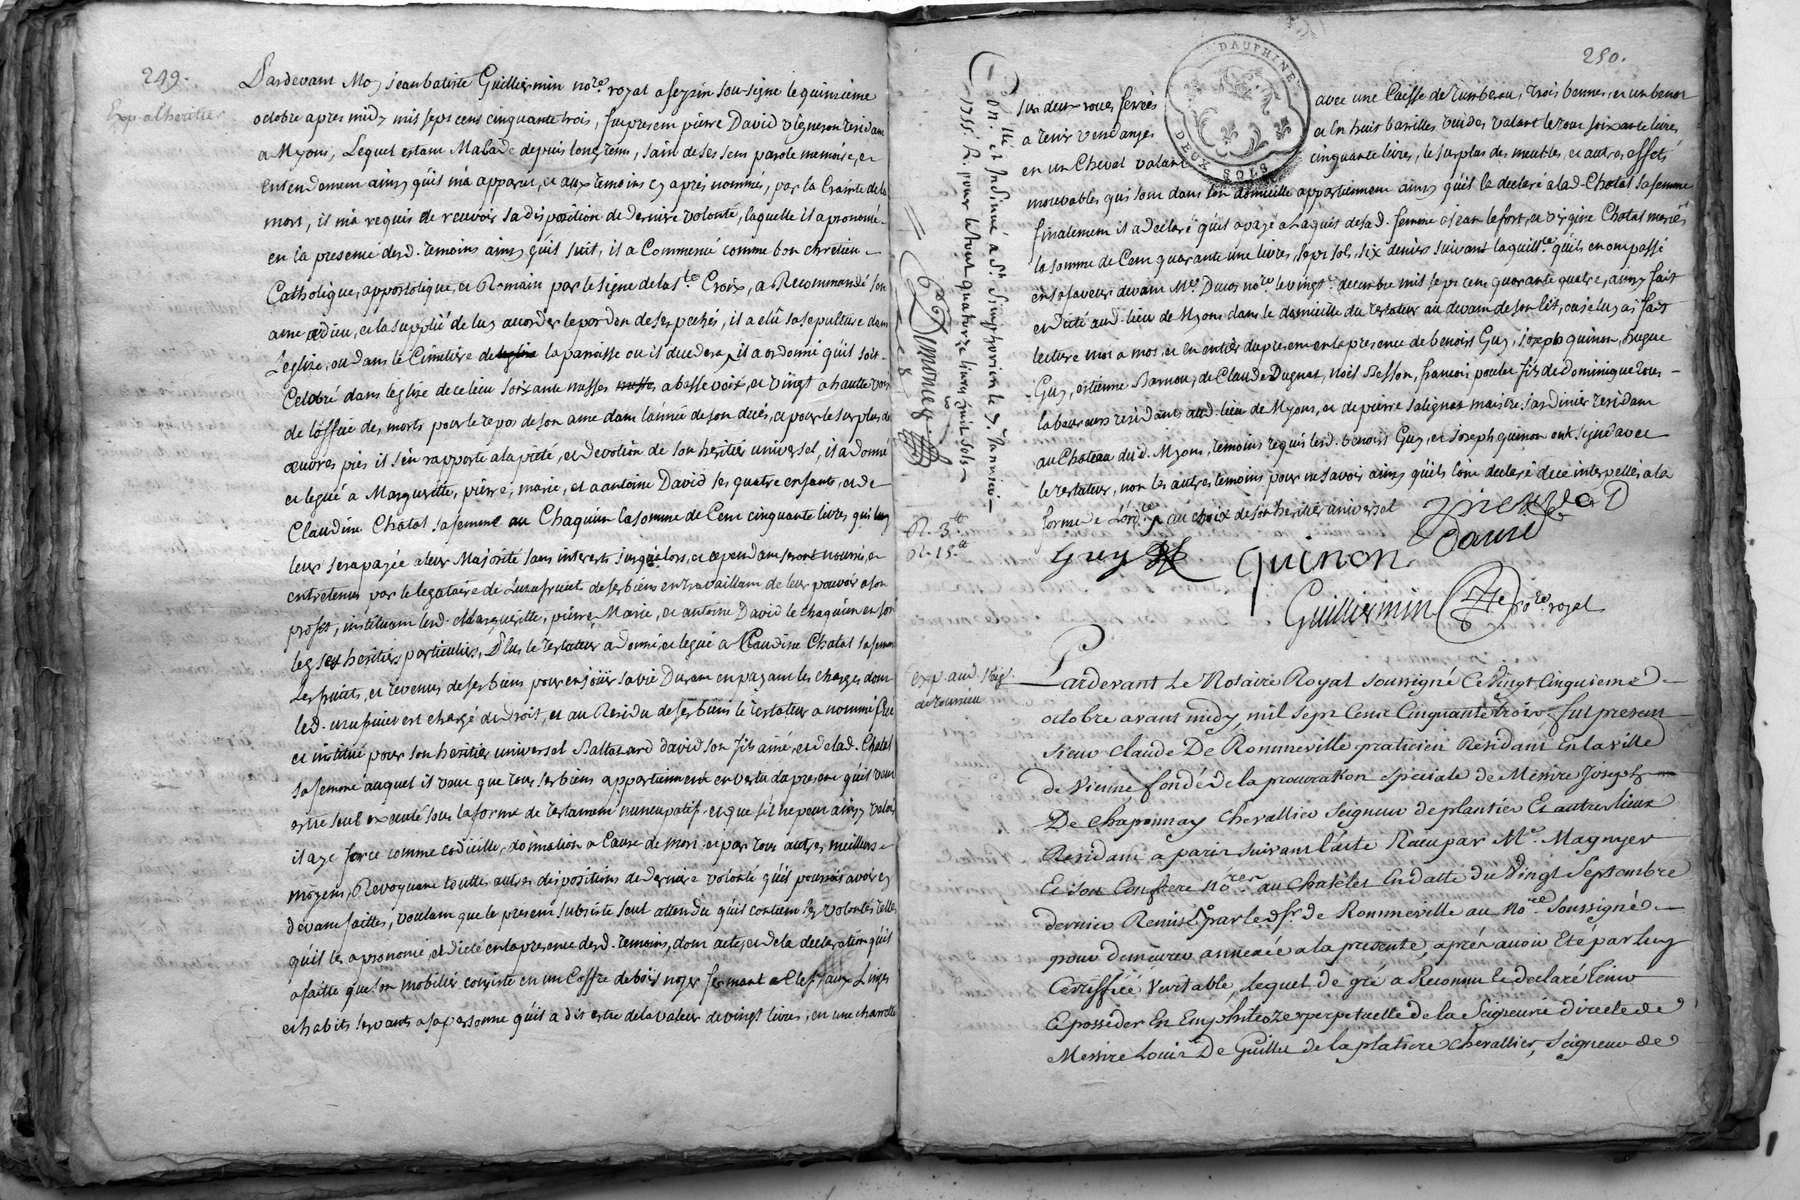 249.
Exp. a lheritier
Pardevant Moy Jean batiste Guilliermin no.re royal a seyzin sousigné le quinzieme
octobre apres midy mil sept cens cinquante trois, fut present pierre David vigneron residant
a Myons, Lequel estant Malade depuis longtems, sain de ses sens parole memoire, et
entendement ainsy qu'il m'a apparu, et aux temoins cy aprés nommés, par la Crainte de la
mort, il m'a requis de recevoir sa disposition de derniere volonté, laquelle il a prononcé
en la presence desd. temoins ainsy qu'il suit, il a Commencé comme bon chretien
Catholique, appostolique, et Romain par le signe de la s.te Croix, a Recommandé son
ame a dieu, et la supplié de luy accorder le pardon de ses pechés, il a elû sa sepulture dans
L'eglize, ou dans le Cimetiere de la paroisse ou il decedera, il a ordonné qu'il soit
Celebré dans leglise de ce lieu soixante messes a basse voix, et vingt a haute voix
de l'office des morts pour le repos de son ame dans l'année de son decés, et pour le surplus des
œuvres pies il s'en rapporte a la pieté, et devotion de son heritier universel, il a donné
et legué a Marguerite, pierre, marie, et a antoine David ses quatre enfants, et de
Claudine Chatal sa femme au Chaquun la somme de Cent cinquante livres qui
leur sera payée a leur Majorité sans interests jusqu'alors, et cependant seront nourris, et
entretenus par le legataire de L'uzufruit de ses biens en travaillant de leur pouvoir a son
profit, instituant lesd. Marguerite, pierre, Marie, et antoine David le chaqu'un en son
leg ses heritiers particuliers, Plus le testateur a donné, et legué a Claudine Chatal sa femme
Les fruits, et revenus de ses biens pour en joüir sa vie Durant en payant les charges dont
led. uzufruit est chargé de droit, et au Residu de ses biens le testateur a nommé
et institué pour son heritier universel Baltazard david son fils ainé, et de lad. Chatal
sa femme auquel il veut que tous ses biens appartiennent en vertu du present qu'il veut
estre seul executé sous la forme de testament nuncupatif et que s'il ne peut ainsy valoir
il aye force comme codicille, donnation a Cause de mort, et par tous autres meilleurs
moyens, Revoquant touttes autres dispositions de derniere volonté qu'il pourroit avoir cy
devant faittes, voulant que le present subsiste seul attendu qu'il contient ses volontés telles
qu'il les a prononcé, et dicté en la presence desd. temoins, dont acte, et de la declaration qu'il
a faitte que son mobilier consiste en un Coffre de bois noyer fermant a Clef aux Linges
et habits servants a sa personne qu'il a dit estre de la valeur de vingt livres, en une charrette
250.
DAUPHINE
DEUX SOLS
sur deux roues ferrées avec une Caisse de tombereau, trois bennes, et un benot
a tenir vendanges et en huit barilles vuides valant le tout soixante livres
en un Cheval valant cinquante livres, le surplus des meubles, et autres effets
mouvables qui sont dans son domicille appartiennent ainsy qu'il la declaré a lad. Chatal sa femme
finalement il a declaré qu'il a payé a Laquit de sad. femme a jean lefort, et virgine Chatal mariés
la somme de Cent quarante une livres, sept sols, six deniers suivant la quitt.ce qu'ils en ont passé
en sa faveur devant M.e Ducos no.re le vingt decembre mil sept cent quarante quatre, ainsy fait
et dicté aud. lieu de Myons dans le domicille du testateur au devant de son lit, et a luy ai fait
lecture mot a mot, et en entier du present en la presence de benoist Guy, joseph quinon, hugue
Guy, estienne Barnou, de Claude Dugnat, noël Besson, francois poulet fils de dominique tous
laboureurs residants aud. lieu de Myons, et de pierre salignat maistre jardinier residant
au Chateau dud. Myons, temoins requis lesd. benoist Guy, et joseph quinon ont signé avec
le testateur, non les autres temoins pour ne savoir ainsy qu'ils l'ont declaré de ce interpellés a la
forme de l'ord.ce au choix de son heritier universel
pierre
David
Guy
quinon
Guilliermin no.re royal
Con.llé et Insinué a S.t Simphorien le 7. Janvier
1755. R. pour le tout quatorze livres huit sols
Demoncez
R. 3.tt
R. 15.tt
exp. aud. Seig.
de tournieu
Pardevant Le Notaire Royal soussigné Ce Vingt Cinquieme
octobre avant midy mil sept Cent Cinquante trois, fut present
sieur Claude De Rommeville praticien Residant En la ville
de Vienne fondé de la procuration speciale de Messire Joseph
De Chaponnay Chevallier Seigneur de plantier Et autres lieux
Residant a paris suivant l'acte Recu par M.e Magnyer
Et son Confrere no.res au Chatelet En datte du Vingt Septembre
dernier Remise par led. s.r de Rommeville au no.re soussigné
pour demeurer annexée a la presente, aprés avoir Eté par luy
Certiffiée Veritable, lequel de gré a Reconnu Et declaré tenir
Et posseder En Emphiteoze perpetuelle de la Seigneurie directe de
Messire Louis De Guillet de la platiere Chevallier, Seigneur de